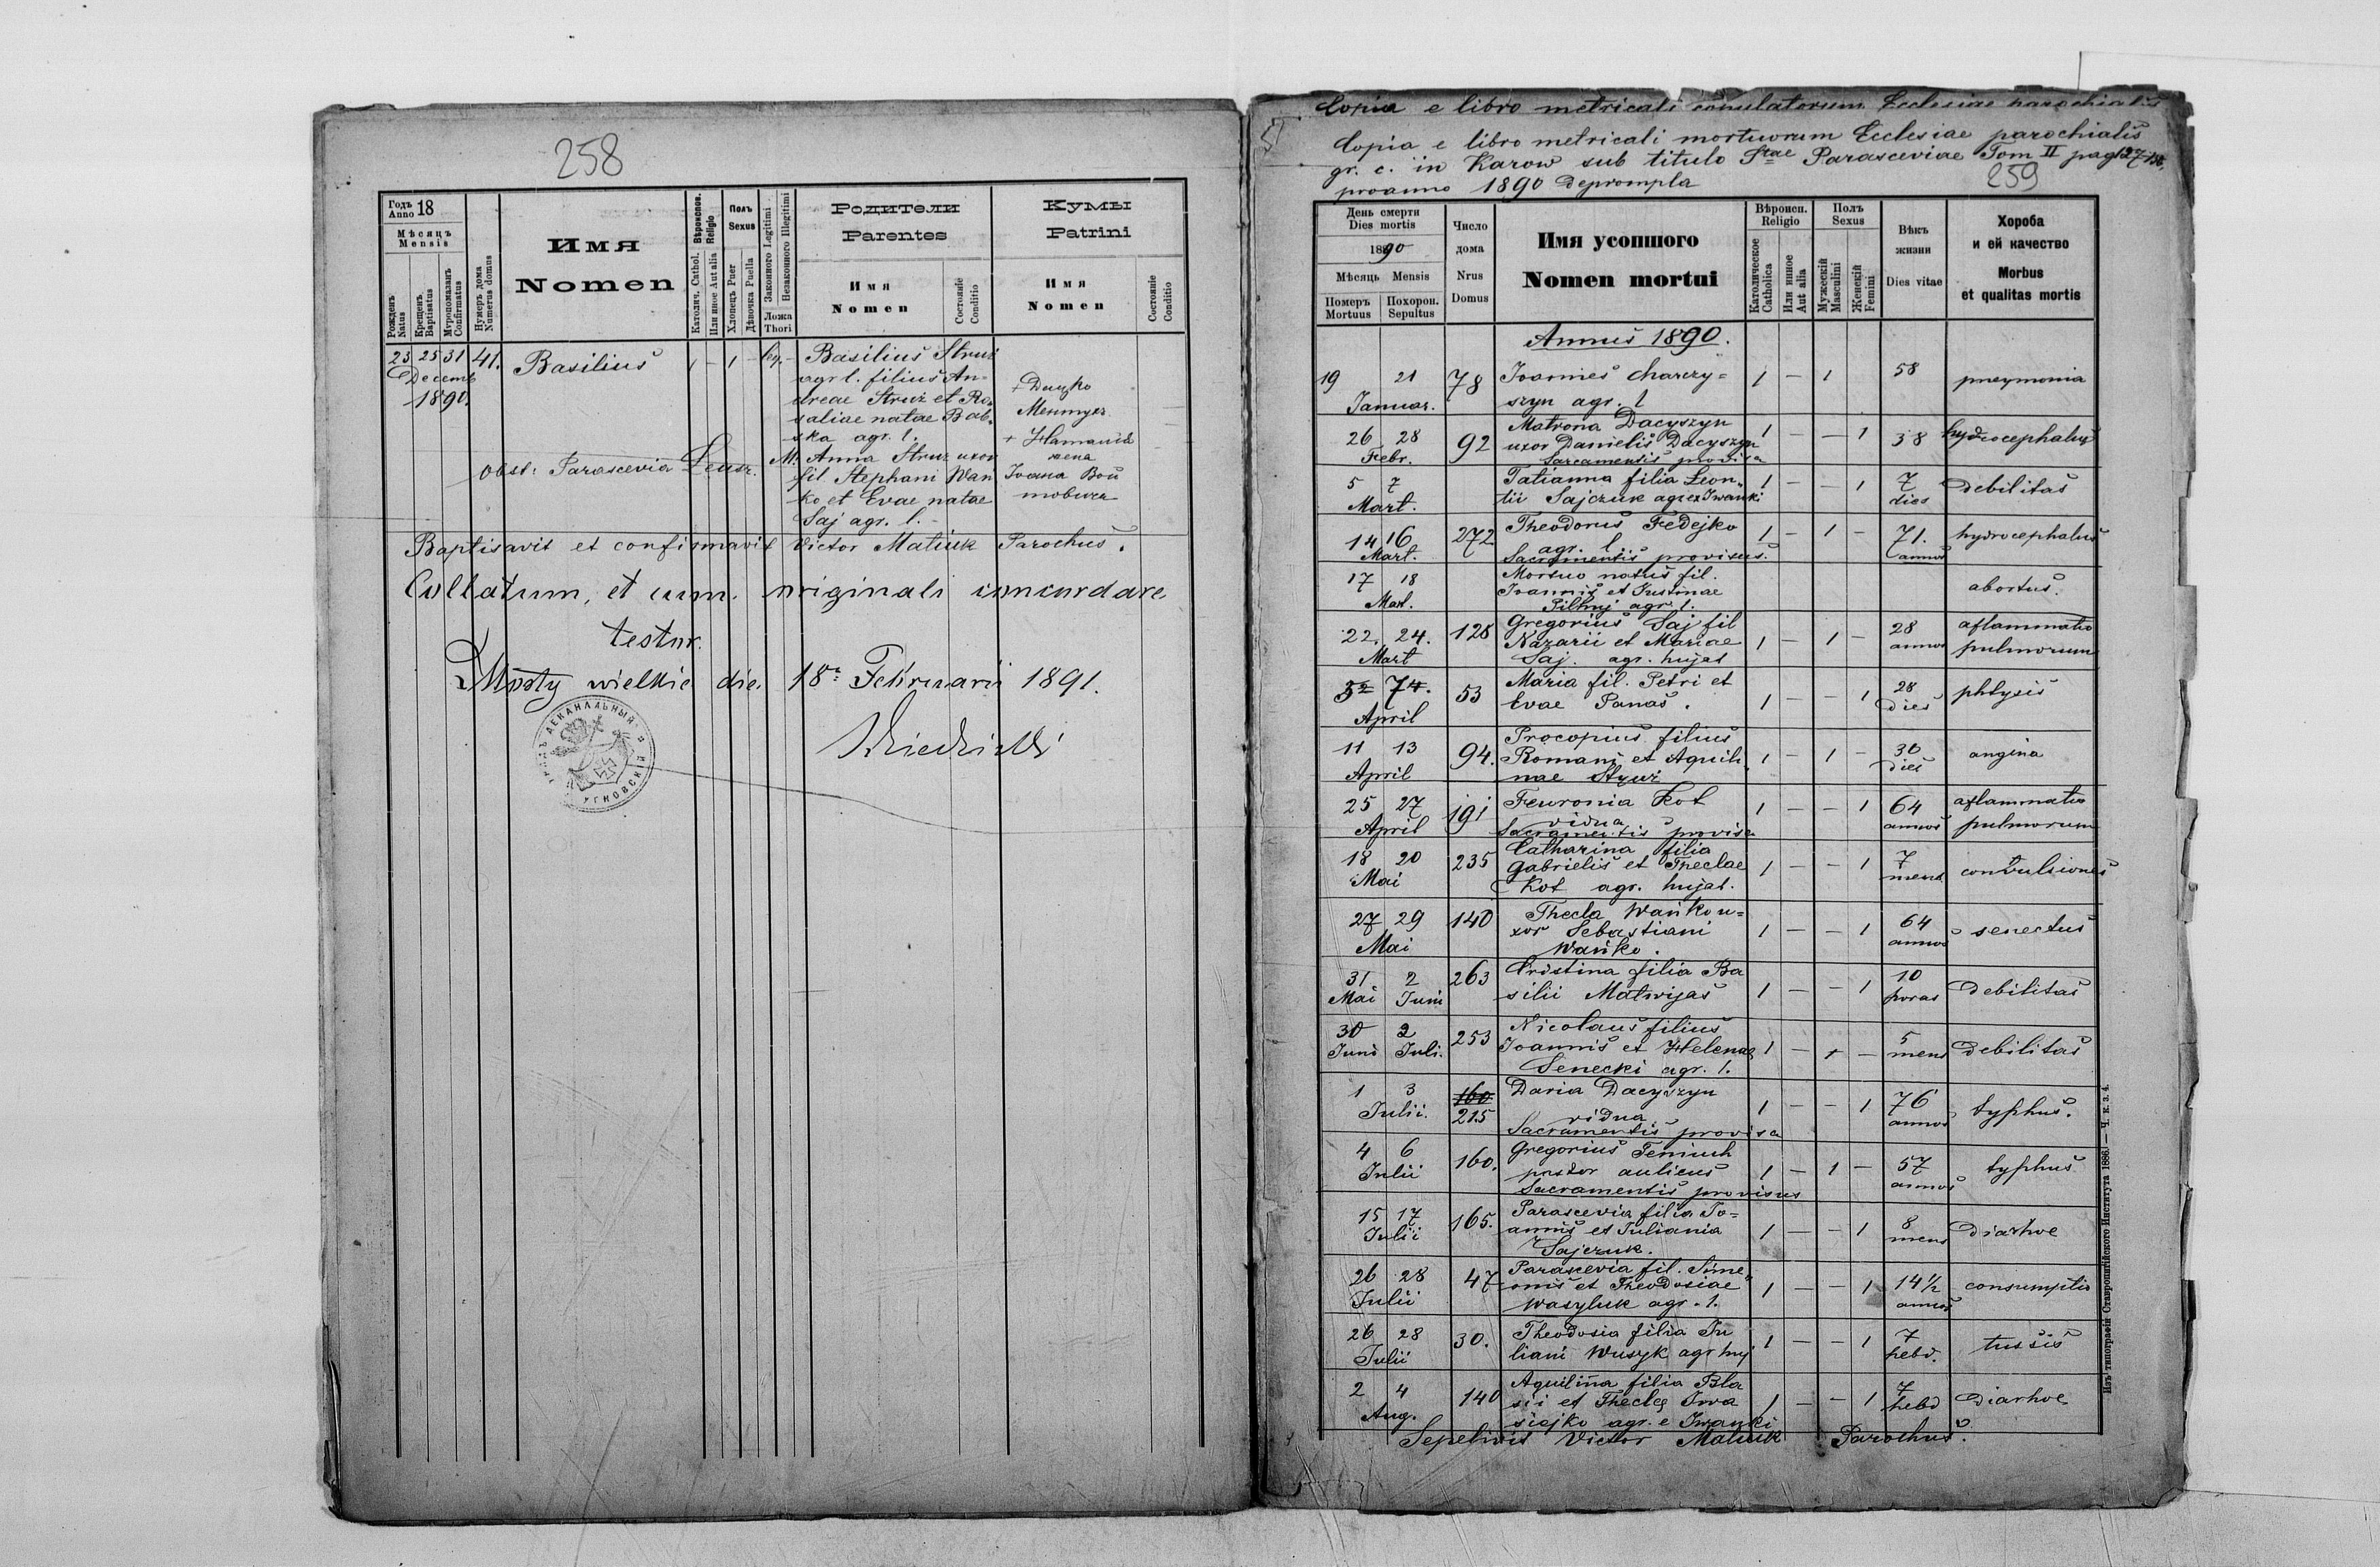 258
Годъ
Anno 18
Мѣсяцъ
Mensis
Рожденъ
Natus
Крещенъ
Baptisatus
Мѵропомазанъ
Confirmatus
Нумеръ дома
Numerus domus
Имя
Nomen
Вѣроиспов.
Religio
Католич. Cathol.
Или иное Aut alia
Полъ
Sexus
Хлопецъ Puer
Дѣвочка Puella
Законного Legitimi
Незаконного Illegitimi
Ложа
Thori
Родители
Parentes
Имя
Nomen
Состояніе
Conditio
Кумы
Patrini
Имя
Nomen
Состояніе
Conditio
23 25 31 41. Basilius 1 – 1 – leg. – Basilius Struż
Decemb
1890.
agr l. filius An-
dreae Struż et Ro-
saliae natae Bab-
ska agr. l.
obst: Parascevia
M. Anna Struż uxor
fil Stephani Wan
ko et Evae natae
Saj agr. l. –
жена
Baptisavit et confirmavit Victor Matiuk Parochus.
Collatum, et cum originali concordare
testor.
Mosty wielkie die 18a Februarii 1891.
259
Copia e libro metricali copulatorum Ecclesiae parochialis
Copia e libro metricali mortuorum Ecclesiae parochialis
gr. c. in Karow sub titulo Stae Parasceviae Tom II pag
pro anno 1890 deprompta
День смерти
Dies mortis
1890
Мѣсяць Mensis
Померъ
Mortuus
Похорон.
Sepultus
Число
дома
Nrus
Domus
Имя усопшого
Nomen mortui
Вѣроисп.
Religio
Католическое
Catholica
Или инное
Aut alia
Полъ
Sexus
Мужескій
Masculini
Женскій
Femini
Вѣкъ
жизни
Dies vitae
Хороба
и ей качество
Morbus
et qualitas mortis
Annus 1890.
19 21 78 Joannes Charczy=
Januar. szyn agr. l 1 – 1 58 pneymonia
26 28 92 Matrona Dacyszyn
Febr. uxor Danielis Dacyszyn 1 – – 1 38 hydrocephalus
Sacramentis provisa
5 7 Tatianna filia Leon-
Mart. tii Sajczuk agr ex Iwanki 1 – – 1 7 dies debilitas
14 16 272 Theodorus Fedejko
Mart. agr. l. 1 – 1 – 71. annos hydrocephalus
Sacramentis provisus.
17 18 Mortuo natus fil.
Mart. Joannis et Justinae
Pilhuj agr. l. abortus.
22. 24. 128 Gregorius Saj fil
Mart Nazarii et Mariae 1 – 1 – 28 annos aflammatio
Saj. agr. hujat pulmorum
74. 53 Maria fil. Petri et
April Evae Panas. 1 – 1 28 dies phtysis
11 13 94. Procopius filius
April Romani et Aquili-
nae Struż 1 – 1 – 30 dies angina
25 27 191 Fewronia Kot
April vidua 1 – – 1 64 annos aflammatio
Sacramentis provisa pulmorum
18 20 235 Catharina filia
Mai Gabrielis et Theclae 1 – – 1 7 mens convulsiones
Kot agr. hujat.
27 29 140 Thecla Wańko u=
Mai xor Sebastiani 1 – – 1 64 annos senectus
Wańko.
31 2 263 Cristina filia Ba
Mai Juni silii Matwijas 1 – – 1 10 horas debilitas
30 2 253 Nicolaus filius
Juni Juli. Joannis et Helenae 1 – 1 – 5 mens debilitas
Senecki agr. l.
1 3 160 Daria Dacyszyn
Julii. 215 vidua 1 – – 1 76 annos typhus.
Sacramentis provisa
4 6 160. Gregorius Feniuch
Julii pastor aulicus 1 – 1 – 57 annos typhus
Sacramentis provisus
15 17 165. Parascevia filia Jo=
Julii annis et Juliania 1 – – 1 8 mens diarhoe
Sajczuk.
26 28 47 Parascevia fil. Sime-
Julii onis et Theodosiae 1 – – 1 14½ annos consumptio
Wasyluk agr. l.
26 28 30. Theodosia filia Ju
Julii liani Wusyk agr huj 1 – – 1 7 hebd. tussis
2 4 140 Aquilina filia Bla
Aug. sii et Theclae Iwa 1 – – 1 7 hebd diarhoe
siejko agr. e Iwanki
Sepelivit Victor Matiuk Parochus.
Изъ типографіи Ставропигійского Института 1886. — Ч. к. з. 4.